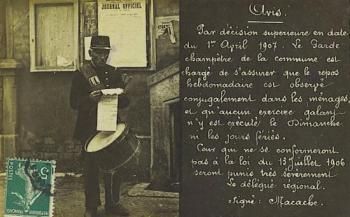 JOURNAL OFFICIEL
Avis.
Par décision supérieure en date
du 1er Avril 1907. Le Garde
champêtre de la commune est
chargé de s'assurer que le repos
hebdomadaire est observé
conjugalement dans les ménages,
et qu'aucun exercice galant
n'y est exécuté le Dimanche
ni les jours fériés.
Ceux qui ne se conformeront
pas à la loi du 13 Juillet 1906
seront punis très sévèrement
Le délégué régional.
Signé: Macache.
5